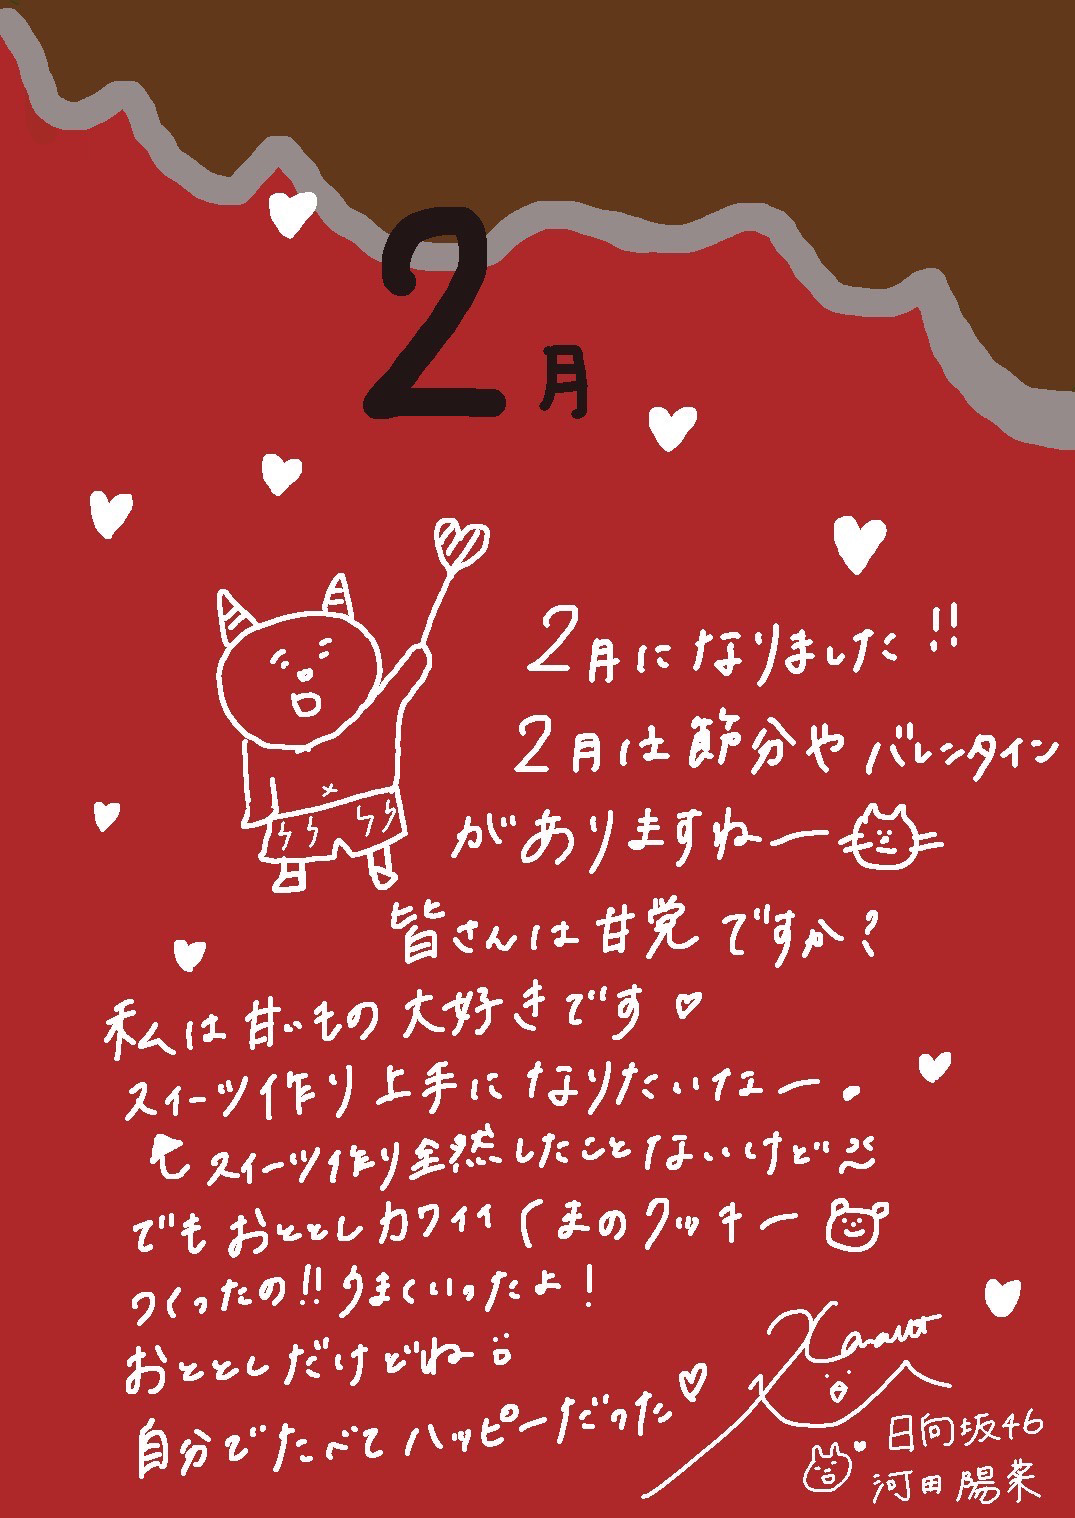 2月
2月になりました!!
2月は節分やバレンタイン
がありますねー
皆さんは甘党ですか?
私は甘いもの大好きです♡
スイーツ作り上手になりたいなー。
スイーツ作り全然したことないけど
でもおととしカワイイくまのクッキー
つくったの!!うまくいったよ!
おととしだけどね
自分でたべてハッピーだった♡
日向坂46
河田陽菜